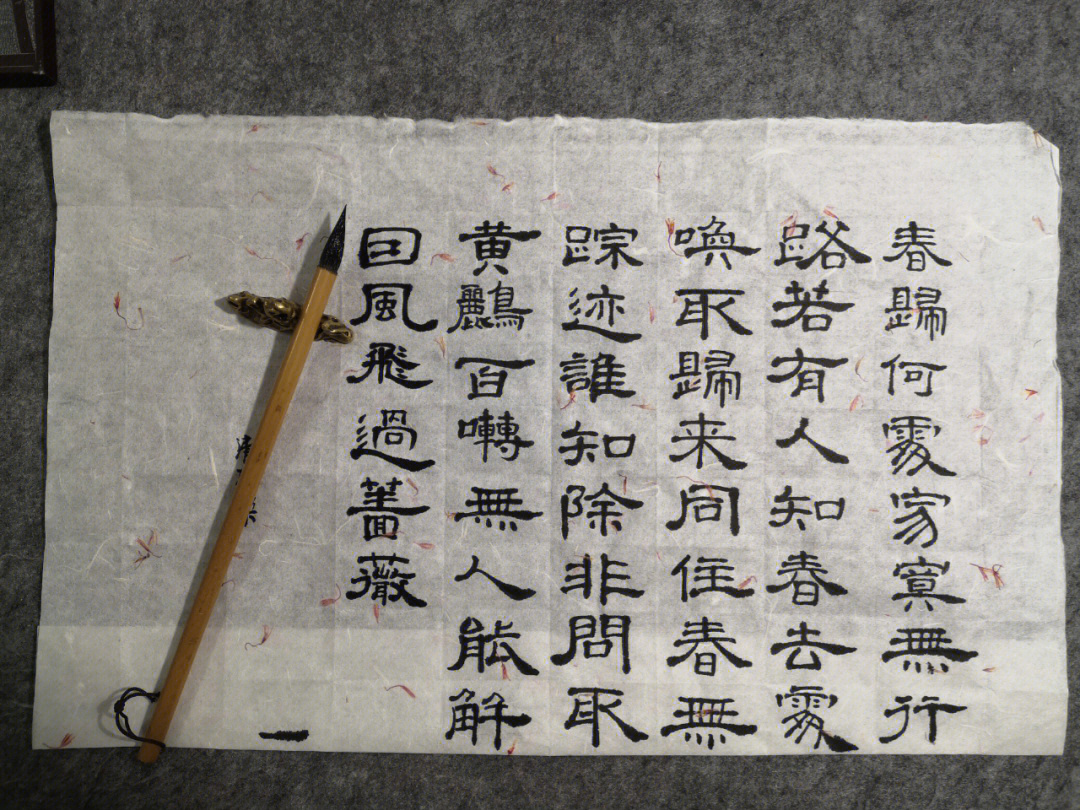 春歸何處寂寞無行
路若有人知春去處
喚取歸来同住春無
踪迹誰知除非問取
黄鸝百囀無人能解
囙風飛過薔薇